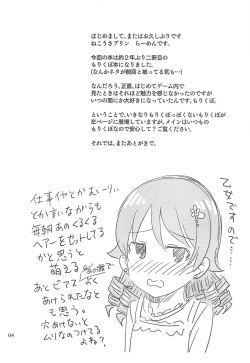 はじめまして、またはお久しぶりです
ねこうさプリン　らーめんです。
今回の本は約２年ぶり二冊目の
もりくぼ本になりました。
(なんかネタが前回と被ってる気も…)
なんだろう、正直、はじめてゲーム内で
見たときはそれほど魅力を感じなかったのですが
いつの間にか大好きになっていたんです、もりくぼ。
ということで、いきなりもりくぼっぽくないもりくぼが
左ページに登場していますが、メインはいつもの
もりくぼなので安心して？ご覧ください。
それでは、またあとがきで。
乙女ですので…
仕事イヤとかむーりぃー
とか言いながらも
毎朝あのくるくる
ヘアーをセットしてる
かと思うと
萌える
あとピアスよく
あけられたなと
も思う。
穴あけないと
ムリなのつけてる
よね？
04